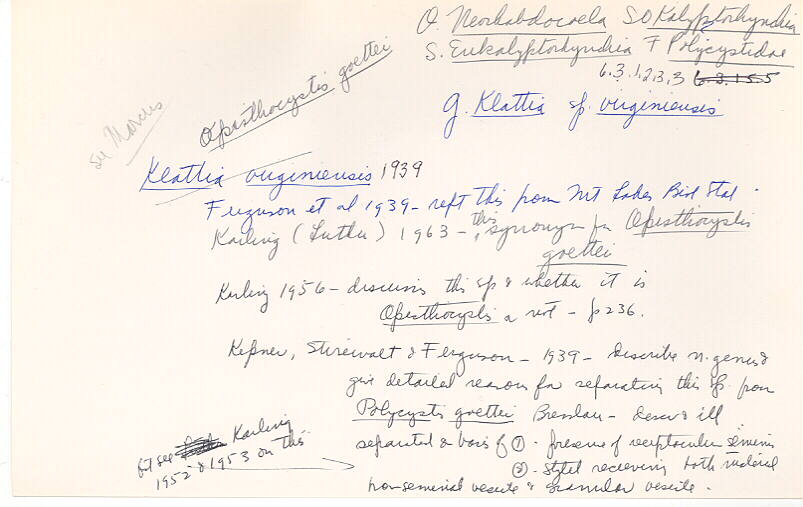 O. Neorhabdocoela SO Kalyptorhynchia
S. Eukalyptorhynchia F Polycystidae
6.3.1.2.13.3 6.3.15.5
G. Klattia sp. virginiensis
Opisthocystis goettei
see
Klattia virginiensis 1939
Ferguson et al 1939 - rept this from Mt Lake Biol Stat.
Karling (Luther) 1963 - this, synonym for Opisthocystis
goettei
Karling 1956 - discusses this sp & whether it is
Opisthocystis or not - p 236.
Kepner, Stirewalt & Ferguson - 1939 - Describe n. genus &
give detailed reasons for separating this sp. from
Polycystis goettei Bresslau - descr & ill
separated on basis of ① - presence of receptaculum seminis
② - stylet receiving both
non seminal vesicle & granular vesicle.
but see Karling
1952 & 1953 on this